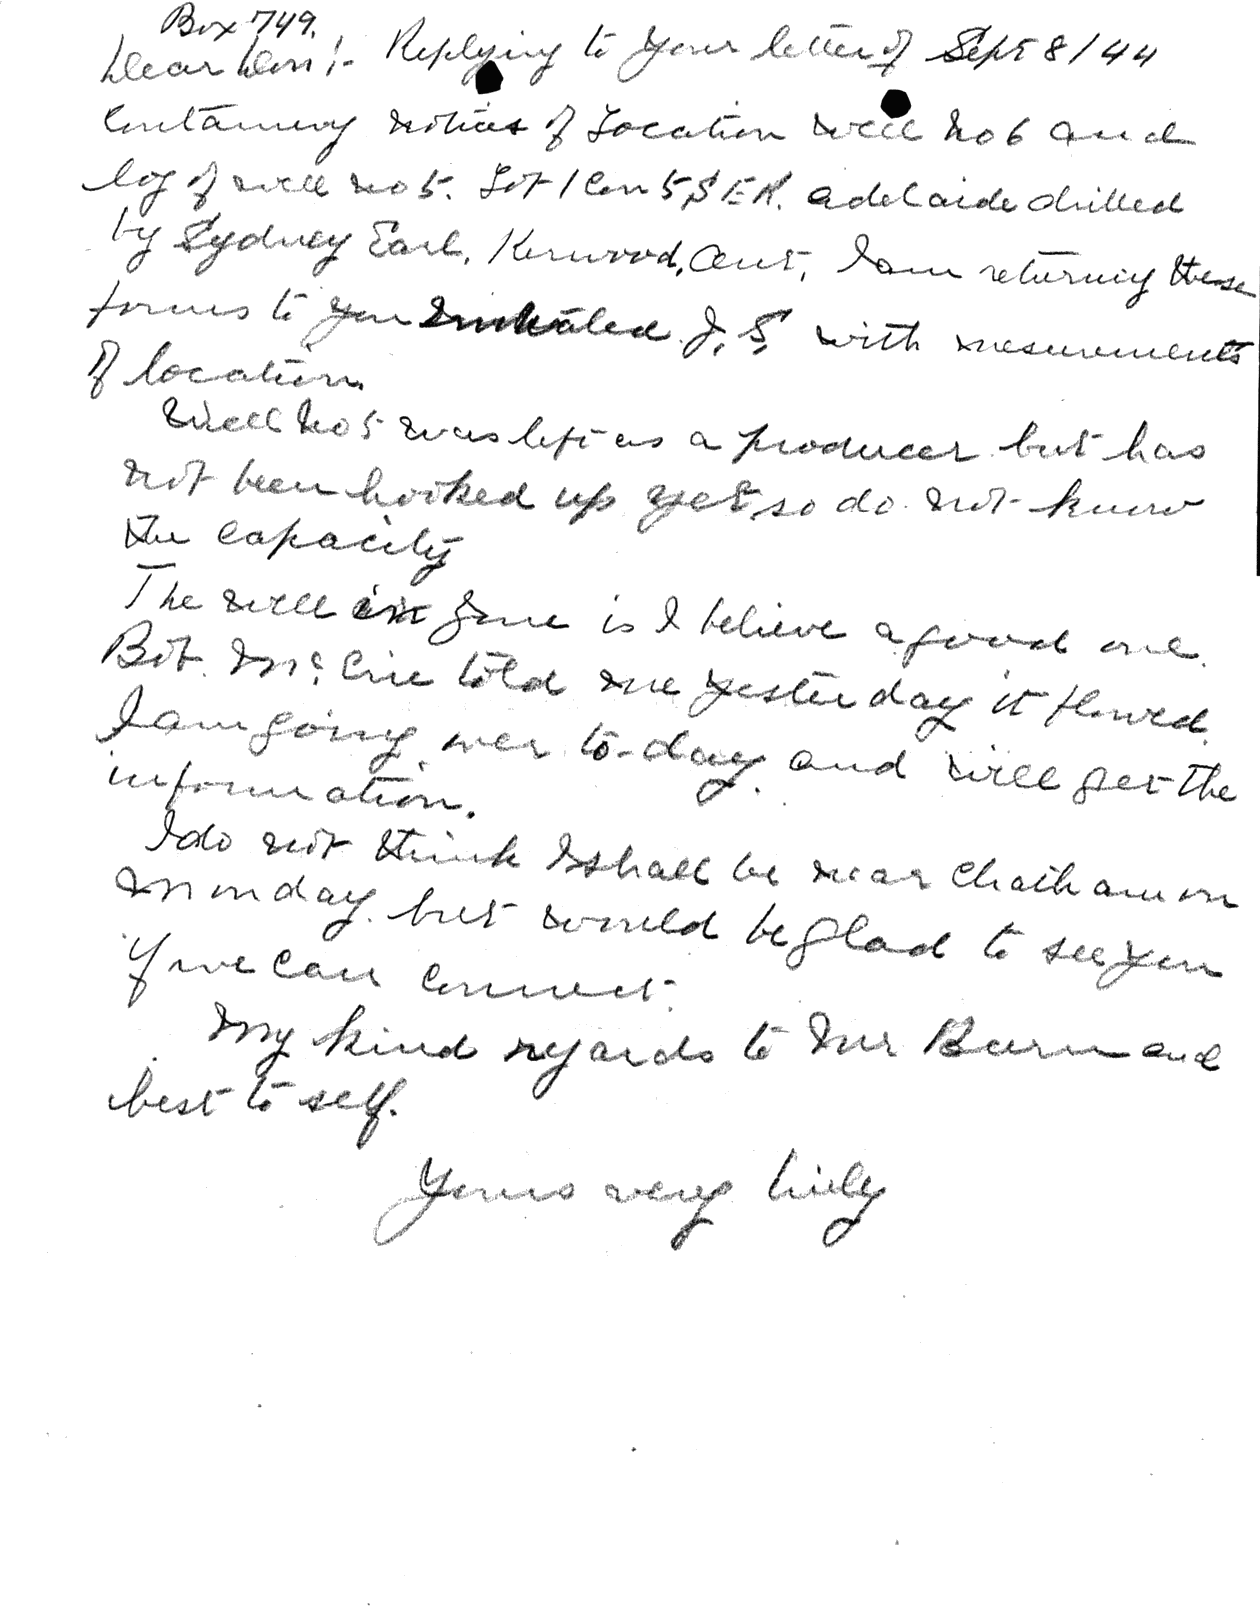 Box 749.
Dear Don :- Replying to your letter of Sept 8/44
containing notices of Location well No 6 and
log of well No 5. Lot 1 Con 5 S E R. Adelaide drilled
by Sydney Earl, Kerwood, Ont, I am returning these
forms to you initialed J. S, with mesurements
of location.
Well No 5 was left as a producer but has
not been hooked up yet, so do not know
the capacity
The well in is I believe a good one.
Bot. told me yesterday it flowed.
I am going over to-day and will get the
information.
I do not think I shall be near Chatham on
Monday. but would be glad to see you
if we can connect.
My kind regards to Mr and
best to self.
Yours very truly